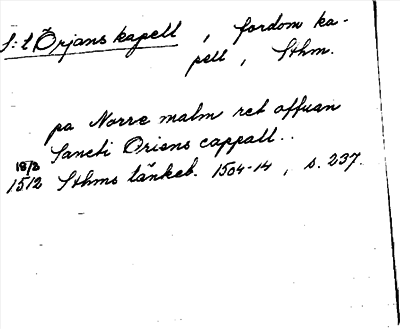 S:t Örjans kapell, fordom ka-
pell, Sthm.
pa Norre malm ret offuan
Sancti Oriens cappall..
18/3
1512 Sthms tänkeb. 1504-14, s. 237.